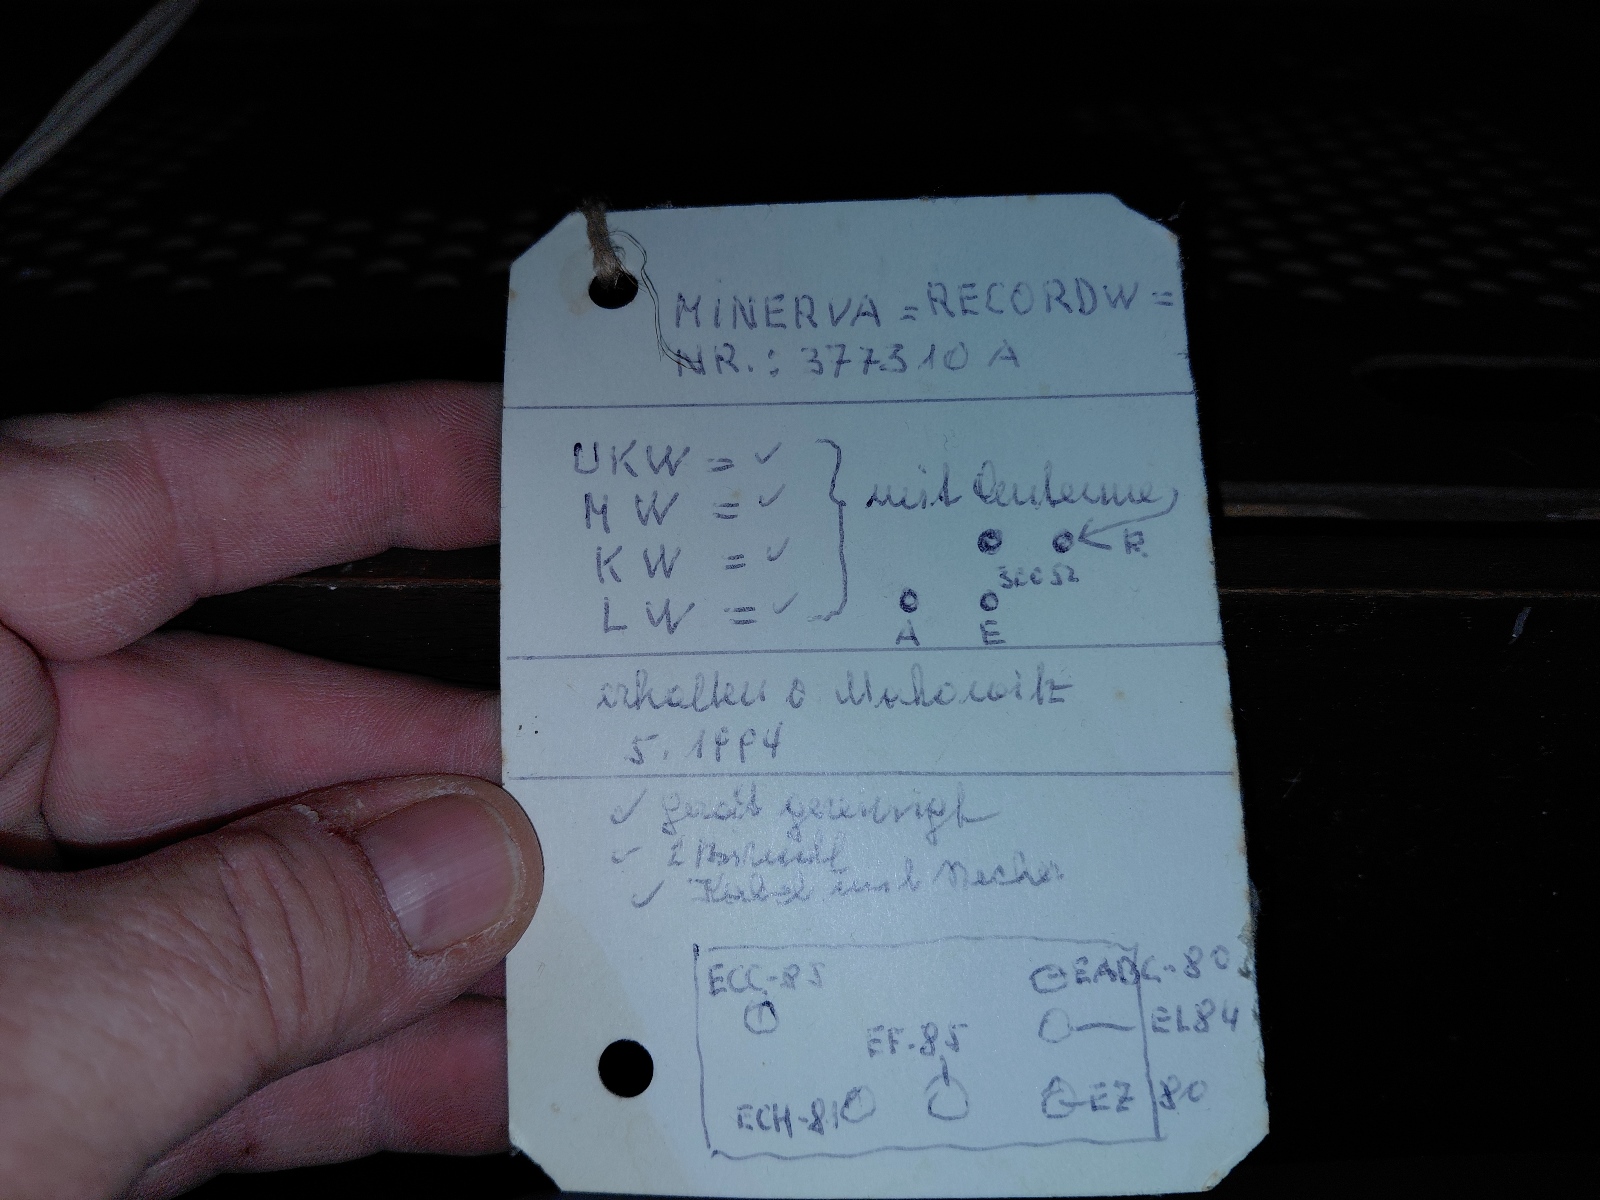 MINERVA = RECORDW =
NR.: 377310 A
UKW = ✓
MW = ✓
KW = ✓
LW = ✓
mit Antenne
R
300 Ω
A E
erhalten
5. 1994
✓ Gerät gereinigt
✓
✓ Kabel und Stecker
ECC-85 EABC-80
EL84
EF-85
ECH-81 EZ 80